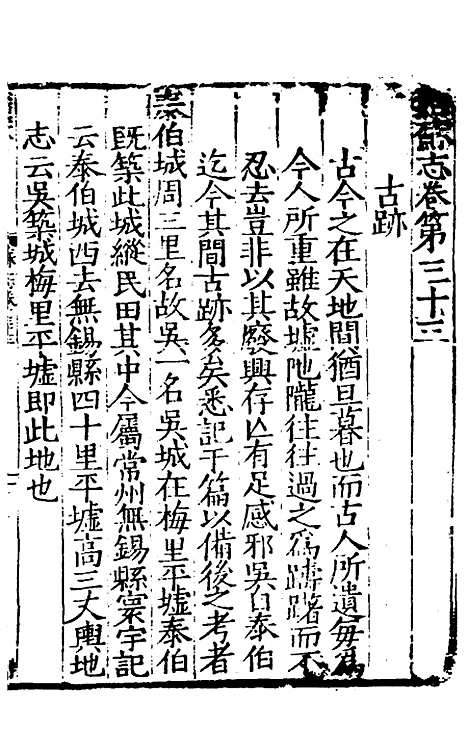 蘇志卷第三十三
古跡
古今之在天地間猶旦暮也而古人所遺每爲
今人所重雖故墟陁隴往往過之爲躊躇而不
忍去豈非以其廢興存亾有足感邪吳自泰伯
迄今其間古跡多矣悉記于篇以備後之考者
泰伯城周三里名故吳一名吳城在梅里平墟泰伯
旣築此城縱民田其中今屬常州無錫縣寰宇記
云泰伯城西去無錫縣四十里平墟高三丈輿地
志云吳築城梅里平墟即此地也